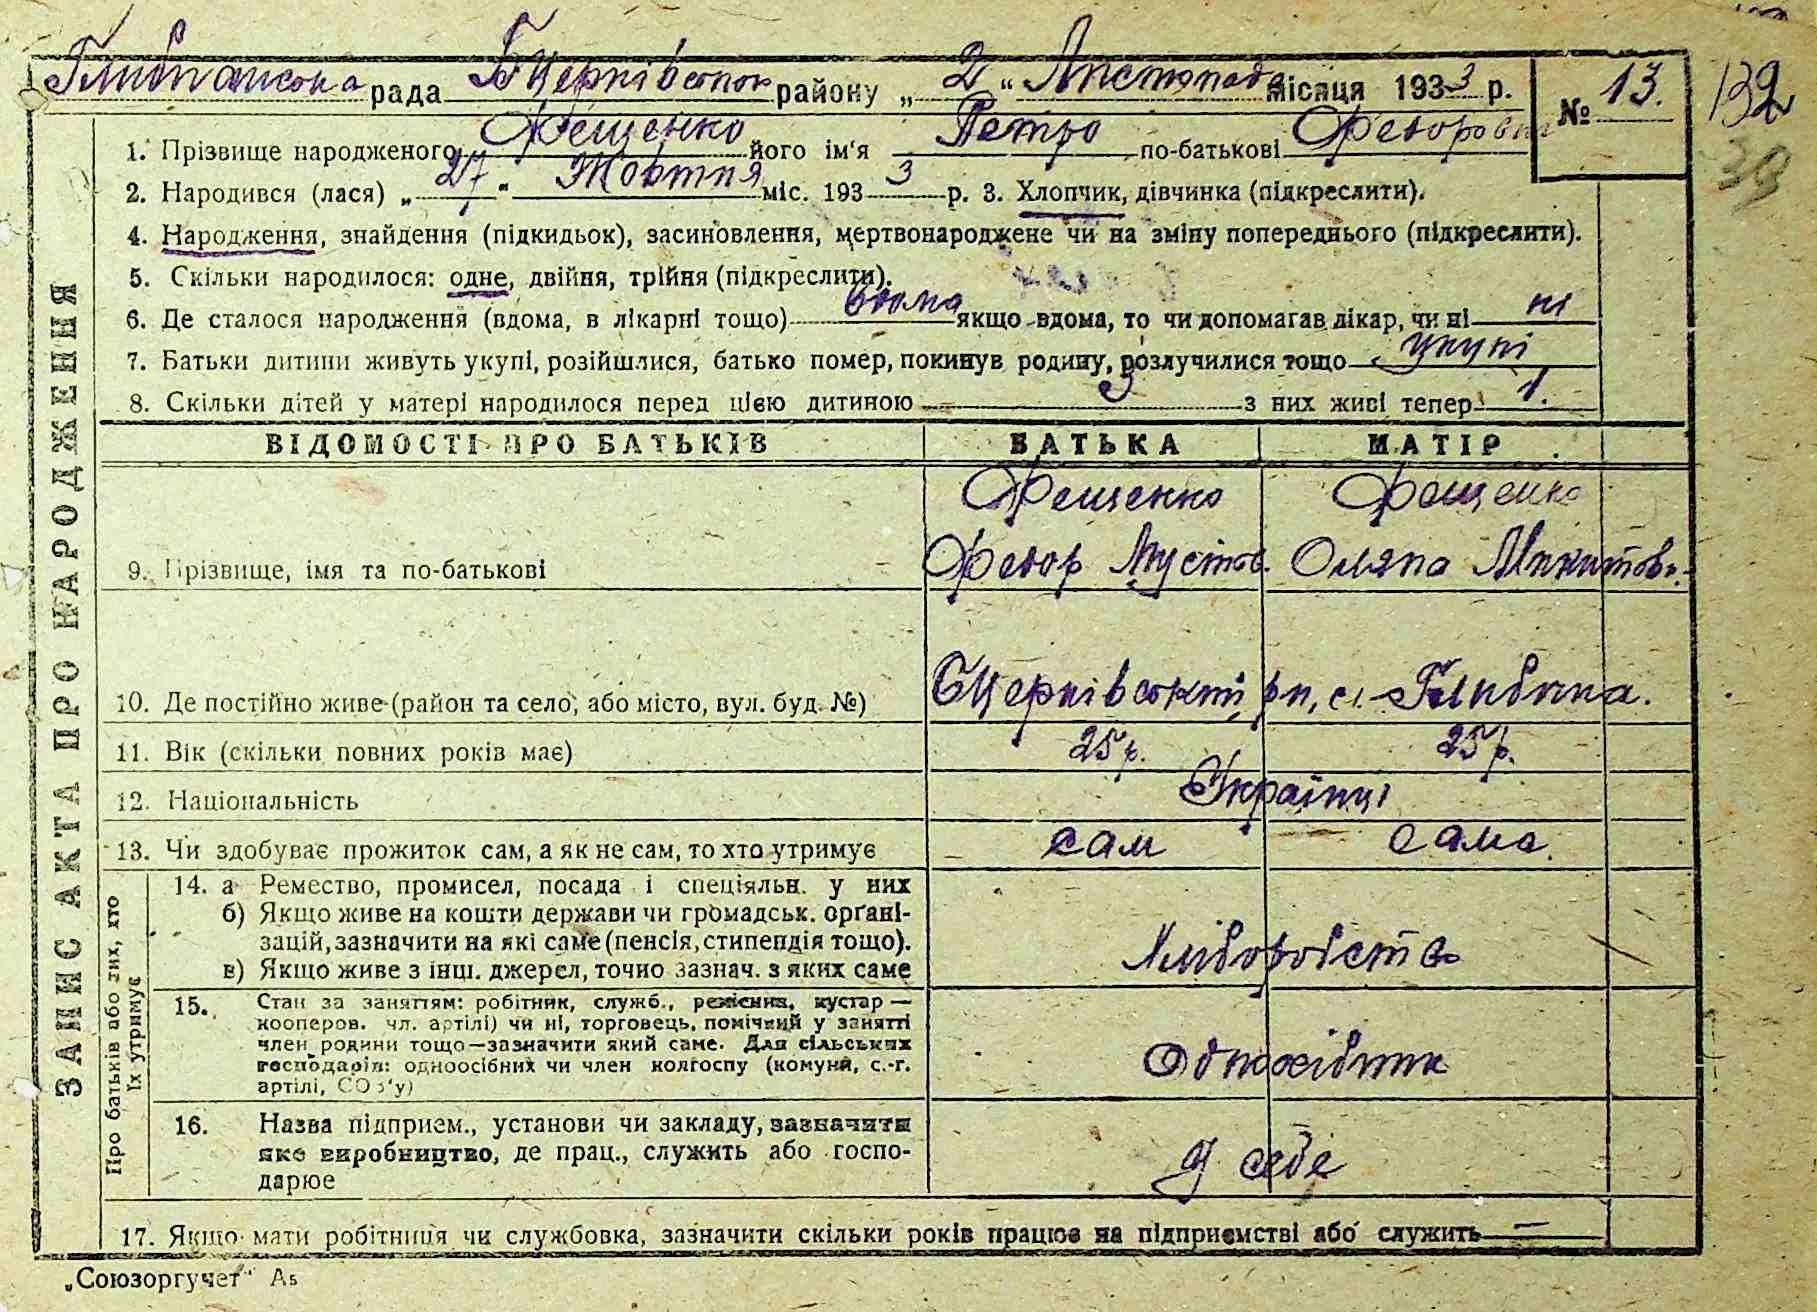 Глибчанська рада Бцерківськ району „ 2 “ Листопада місяця 1933 р.
№ 13.
132
39
1. Прізвище народженого Фещенко його ім'я Петро по-батькові Федорови
2. Народився (лася) „ 27 “ Жовтня міс. 193 3 р. 3. Хлопчик, дівчинка (підкреслити).
4. Народження, знайдення (підкидьок), засиновлення, мертвонароджене чи на зміну попереднього (підкреслити).
5. Скільки народилося: одне, двійня, трійня (підкреслити).
6. Де сталося народження (вдома, в лікарні тощо) вдома якщо вдома, то чи допомагав лікар, чи ні ні
7. Батьки дитини живуть укупі, розійшлися, батько помер, покинув родину, розлучилися тощо укупі
8. Скільки дітей у матері народилося перед цією дитиною 3 з них живі тепер 1.
ВІДОМОСТІ ПРО БАТЬКІВ БАТЬКА МАТІР
Фещенко Фещенко
9. Прізвище, імя та по-батькові Федор Мустов. Оляна Микитовн.
10. Де постійно живе (район та село, або місто, вул. буд. №) Бцерківський рн, с. Глибочка.
11. Вік (скільки повних років має) 25 р. 25 р.
12. Національність Українці
13. Чи здобуває прожиток сам, а як не сам, то хто утримує сам сама
14. а Ремество, промисел, посада і спеціяльн. у них
б) Якщо живе на кошти держави чи громадськ. орґані-
зацій, зазначити на які саме (пенсія, стипендія тощо).
в) Якщо живе з інш. джерел, точно зазнач. з яких саме
Хліборобство
15. Стан за заняттям: робітник, служб., ремісник, кустар —
кооперов. чл. артілі) чи ні, торговець, помічний у занятті
член родини тощо—зазначити який саме. Для сільських
господарів: одноосібних чи член колгоспу (комуни, с.-г.
артілі, СОЗ'у)
Одноосібник
16. Назва підприєм., установи чи закладу, зазначити
яке виробництво, де прац., служить або госпо-
дарює
У себе
17. Якщо мати робітниця чи службовка, зазначити скільки років працює на підприємстві або служить —
ЗАПИС АКТА ПРО НАРОДЖЕННЯ
Про батьків або тих, хто
їх утримує
„Союзоргучет“ А5